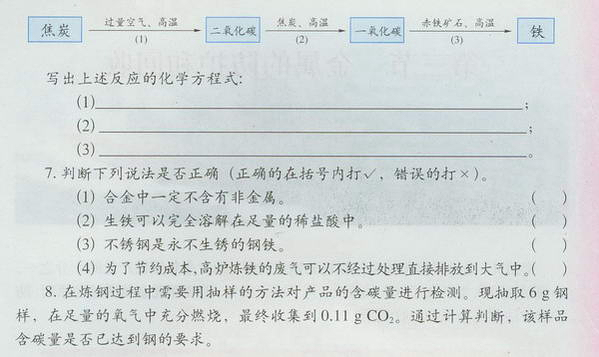 焦炭 过量空气、高温 (1) 二氧化碳 焦炭、高温 (2) 一氧化碳 赤铁矿石、高温 (3) 铁
写出上述反应的化学方程式:
(1) ;
(2) ;
(3) 。
7. 判断下列说法是否正确（正确的在括号内打√，错误的打×）。
(1) 合金中一定不含有非金属。 ( )
(2) 生铁可以完全溶解在足量的稀盐酸中。 ( )
(3) 不锈钢是永不生锈的钢铁。 ( )
(4) 为了节约成本,高炉炼铁的废气可以不经过处理直接排放到大气中。( )
8. 在炼钢过程中需要用抽样的方法对产品的含碳量进行检测。现抽取 6 g 钢
样，在足量的氧气中充分燃烧，最终收集到 0.11 g CO₂。通过计算判断，该样品
含碳量是否已达到钢的要求。